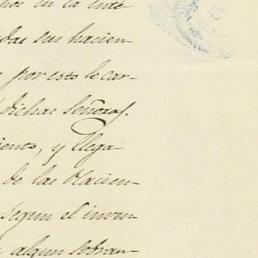 en la inte
das sus hacien-
por esto le car-
dichas Señoras.
iento, y llega-
de las Hacien-
segun el inven-
algun sobran-